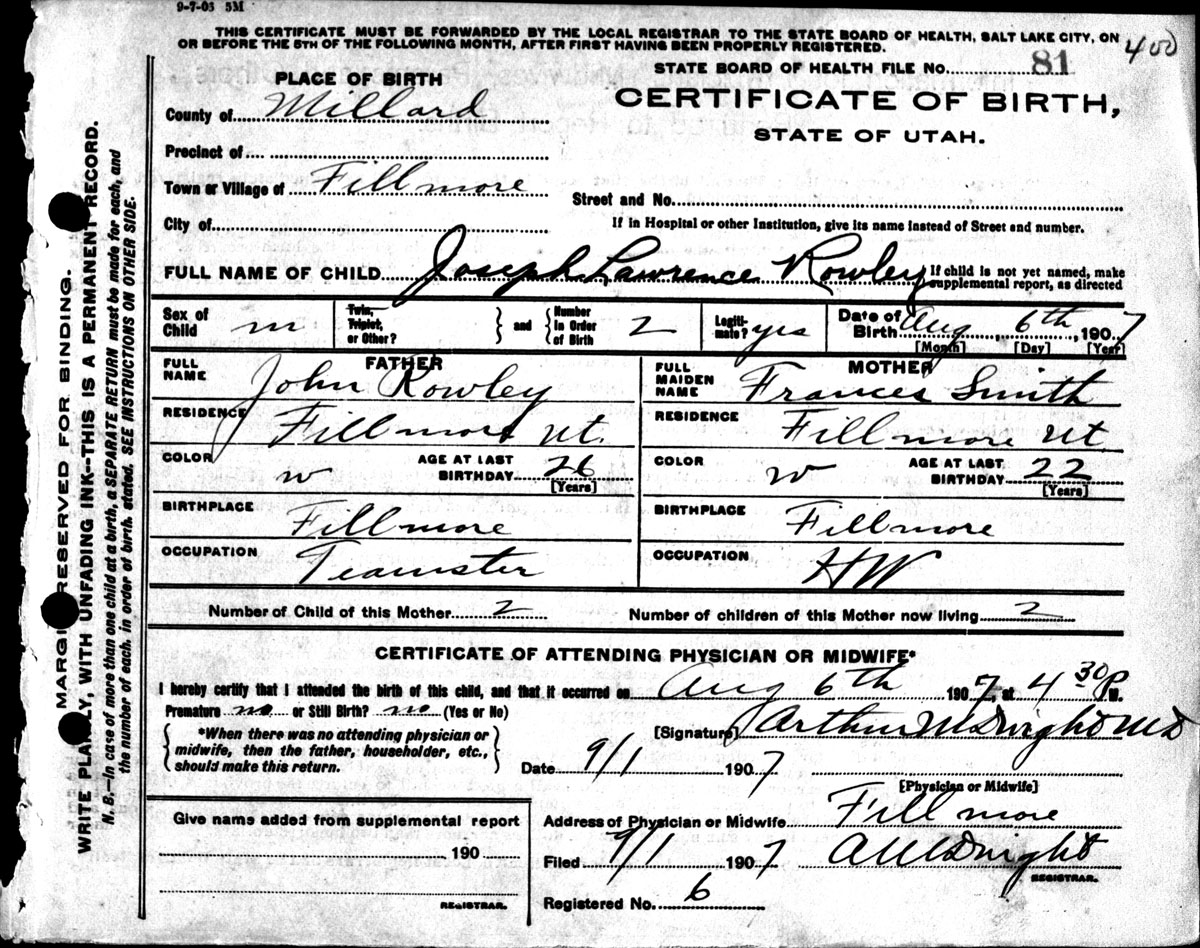 9-7-03 53M
THIS CERTIFICATE MUST BE FORWARDED BY THE LOCAL REGISTRAR TO THE STATE BOARD OF HEALTH, SALT LAKE CITY, ON
OR BEFORE THE 5TH OF THE FOLLOWING MONTH, AFTER FIRST HAVING BEEN PROPERLY REGISTERED.
400
PLACE OF BIRTH
STATE BOARD OF HEALTH FILE No. 81
County of Millard
CERTIFICATE OF BIRTH,
STATE OF UTAH.
Precinct of
Town or Village of Fillmore
Street and No.
City of
If in Hospital or other Institution, give its name instead of Street and number.
FULL NAME OF CHILD Joseph Lawrence Rowley
If child is not yet named, make
supplemental report, as directed
Sex of Child m
Twin, Triplet, or Other? and Number in Order of Birth 2
Legitimate? yes
Date of Birth Aug 6th, 1907
[Month] [Day] [Year]
FATHER
FULL NAME John Rowley
MOTHER
FULL MAIDEN NAME Frances Smith
RESIDENCE Fillmore Ut.
RESIDENCE Fillmore Ut
COLOR w AGE AT LAST BIRTHDAY 26 [Years]
COLOR w AGE AT LAST BIRTHDAY 22 [Years]
BIRTHPLACE Fillmore
BIRTHPLACE Fillmore
OCCUPATION Teamster
OCCUPATION HW
Number of Child of this Mother 2 Number of children of this Mother now living 2
CERTIFICATE OF ATTENDING PHYSICIAN OR MIDWIFE*
I hereby certify that I attended the birth of this child, and that it occurred on Aug 6th 1907, at 4 30 P M.
Premature no or Still Birth? no (Yes or No)
*When there was no attending physician or
midwife, then the father, householder, etc.,
should make this return.
[Signature] Arthur McDwight MD
Date 9/1 1907
[Physician or Midwife]
Give name added from supplemental report
190
REGISTRAR.
Address of Physician or Midwife Fillmore
Filed 9/1 1907
REGISTRAR.
Registered No. 6
MARGIN RESERVED FOR BINDING.
WRITE PLAINLY, WITH UNFADING INK--THIS IS A PERMANENT RECORD.
N. B.—In case of more than one child at a birth, a SEPARATE RETURN must be made for each, and
the number of each, in order of birth, stated. SEE INSTRUCTIONS ON OTHER SIDE.